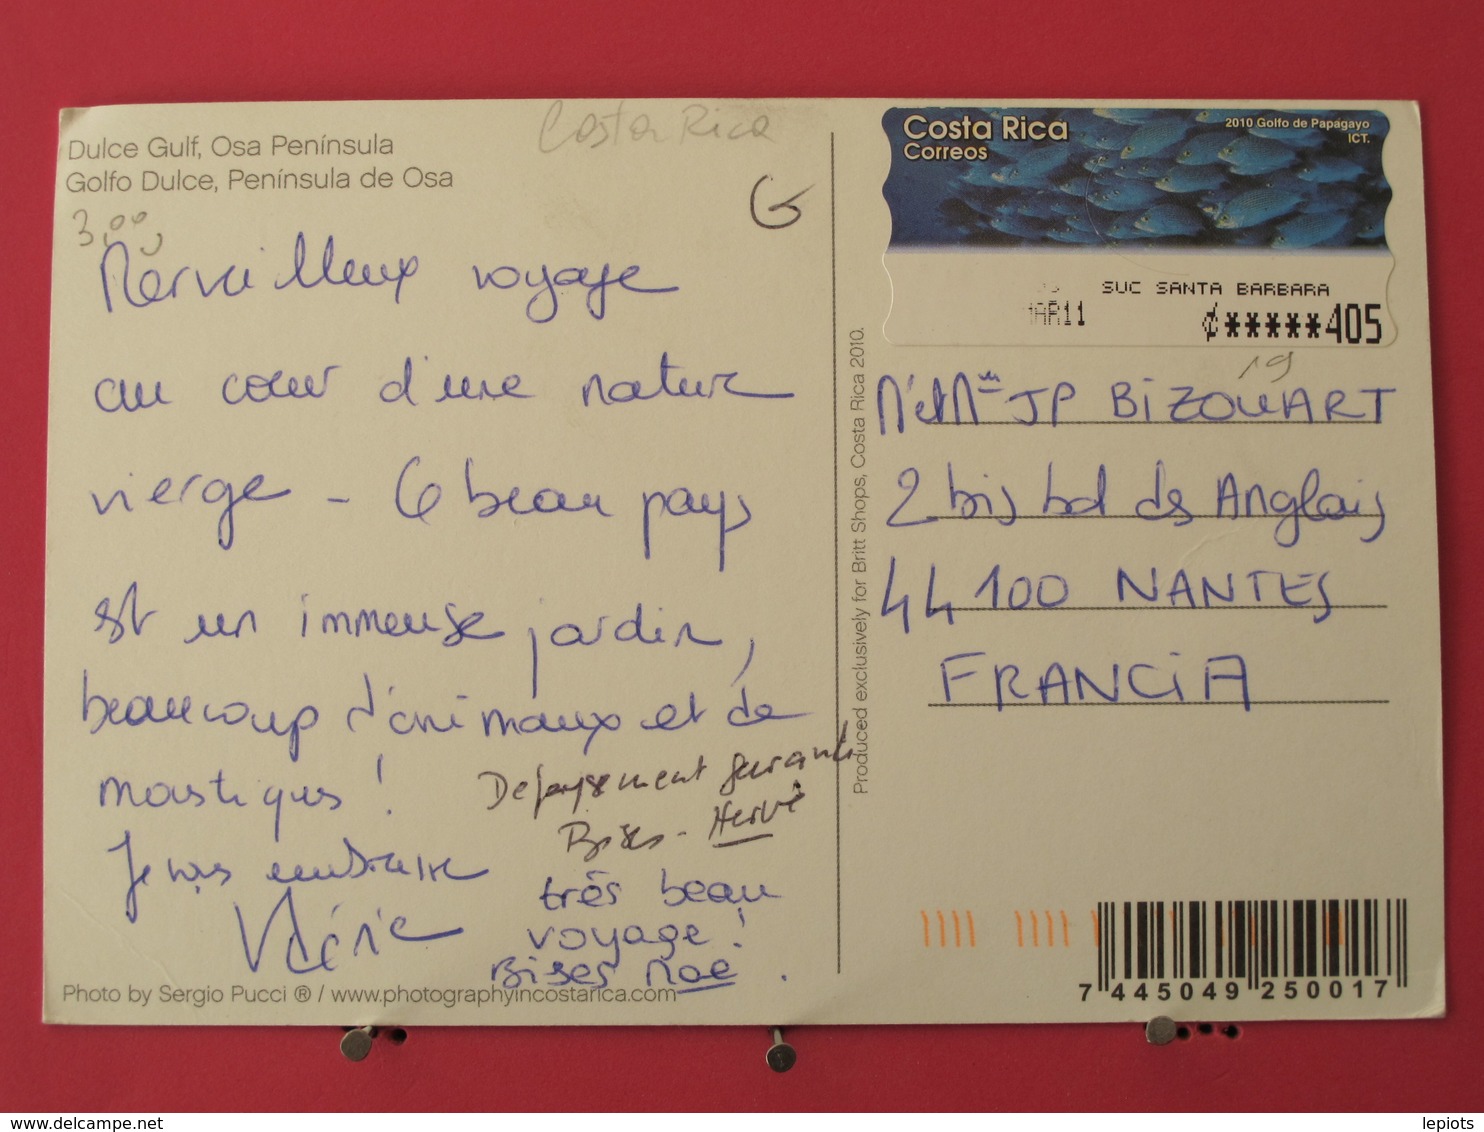 Costa Rica
Dulce Gulf, Osa Península
Golfo Dulce, Península de Osa
3,00
Merveilleux voyage
au cœur d'une nature
vierge - Ce beau pays
est un immense jardin,
beaucoup d'animaux et de
moustiques !
Je vous embrasse
Valérie
Depaysement garanti
Bises - Hervé
très beau
voyage !
Bises Noé .
Photo by Sergio Pucci ® / www.photographyincostarica.com
Produced exclusively for Britt Shops, Costa Rica 2010.
Costa Rica
Correos
2010 Golfo de Papagayo
ICT.
SUC SANTA BARBARA
MAR11
¢*****405
19
Mr et Mme JP BIZOUART
2 bis bd des Anglais
44100 NANTES
FRANCIA
7 445049 250017
delcampe.net
lepiots